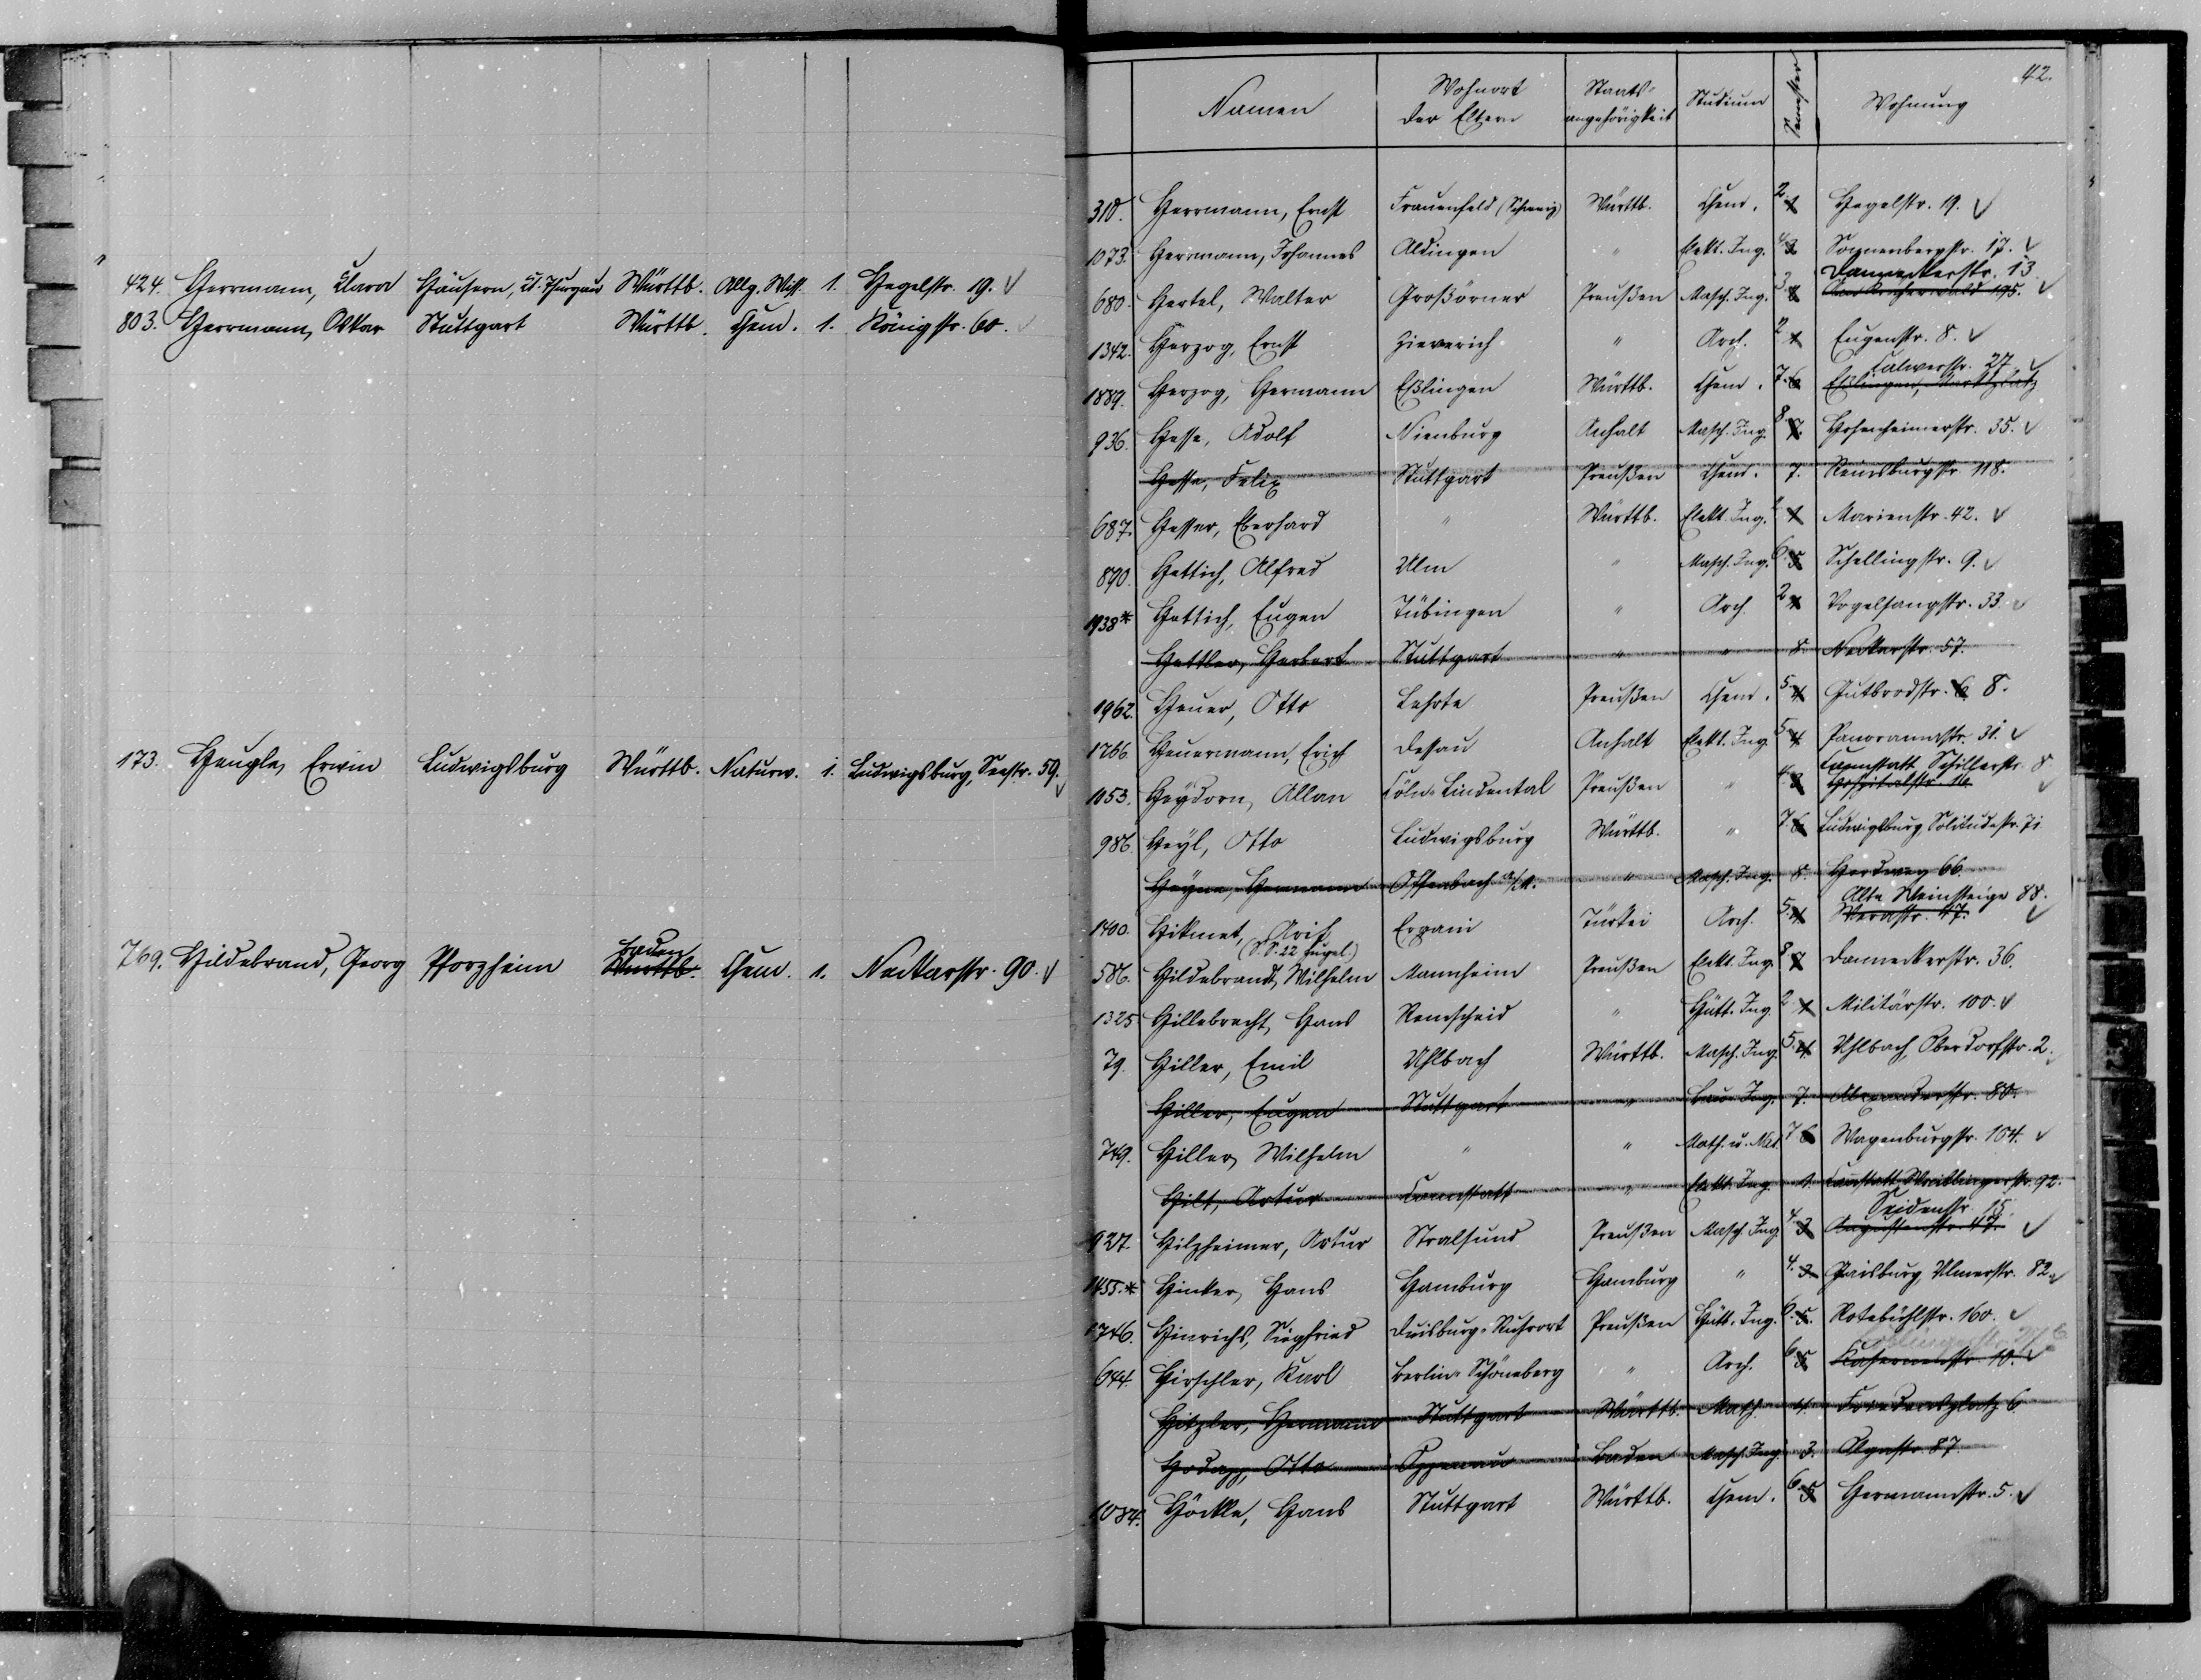 424. Herrmann, Clara Häusern, Kt. Thurgau Württb. Allg. Wiss. 1. Hegelstr. 19.
803. Herrmann, Oskar Stuttgart Württb. Chem. 1. Königstr. 60.
173. Heugle, Erwin Ludwigsburg Württb. Naturw. 1. Ludwigsburg, Seestr. 59.
Baden
769. Hildebrand, Georg Pforzheim Württb. Chem. 1. Neckarstr. 90.
42.
Namen Wohnort der Eltern Staats-angehörigkeit Studium Semester Wohnung
310. Herrmann, Ernst Frauenfeld (Schweiz) Württb. Chem. 2. 1 Hegelstr. 19.
1073. Herrmann, Johannes Aldingen " Elekt. Ing. 4. 3 Sonnenbergstr. 17.
Danneckerstr. 13
680. Hertel, Walter Großörner Preußen Masch. Ing. 3.
1342. Herzog, Ernst Hieverich " Arch. 2 1 Eugenstr. 8.
Calwerstr. 27.
1889. Herzog, Hermann Eßlingen Württb. Chem. 7. 6 Eßlingen, Marktplatz
936. Hesse, Adolf Nienburg Anhalt Masch. Ing. 8 7. Hohenheimerstr. 35.
Hesse, Felix Stuttgart Preußen Chem. 7. Reinsburgstr. 118.
687. Hesser, Eberhard " Württb. Elekt. Ing. 2 1 Marienstr. 42.
890. Hettich, Alfred Ulm " Masch. Ing. 6. 5 Schellingstr. 9.
1938* Hettich, Eugen Tübingen " Arch. 2 1 Vogelsangstr. 33.
Hettler, Herbert Stuttgart " " 8. Neckarstr. 57.
1962. Heuer, Otto Lehrte Preußen Chem. 5. 4 Gutbrodstr. 6 8.
1766. Heuermann, Erich Dessau Anhalt Elekt. Ing. 5 4 Panoramastr. 31.
Cannstatt Schillerstr. 8
1053. Heydorn, Allan Cöln-Lindental Preußen " 4. 3 Hospitalstr. 16
986. Heyl, Otto Ludwigsburg Württb. " 7. 6 Ludwigsburg, Solitudestr. 71
Heyne, Hermann Offenbach a/M. " Masch. Ing. 8. Herdweg 66
Alte Weinsteige 88.
1400. Hikmet, Arif Türkei Arch. 5. 4 Werastr. 47.
(S.S. 22 beurl.)
586. Hildebrandt, Wilhelm Mannheim Preußen Elekt. Ing. 8 7 Danneckerstr. 36.
1325 Hillebrecht, Hans Remscheid " Hütt. Ing. 2 1 Militärstr. 100.
79. Hiller, Emil Uhlbach Württb. Masch. Ing. 5. 4 Uhlbach, Oberdorfstr. 2.
Hiller, Eugen Stuttgart " Bau-Ing. 7. Alexanderstr. 80.
749. Hiller, Wilhelm " " Math. u. Nat. 7. 6 Wagenburgstr. 104.
Hilt, Artur Cannstatt " Elekt. Ing. 1. Cannstatt, Waiblingerstr. 92.
Seidenstr. 15.
927. Hilzheimer, Artur Stralsund Preußen Masch. Ing. 4. 3 Augustenstr. 47.
1455.* Hinker, Hans Hamburg Hamburg " 4. 3. Gaisburg, Ulmerstr. 82.
1746. Hinrichs, Siegfried Duisburg-Ruhrort Preußen Hütt. Ing. 6. 5. Rotebühlstr. 160.
644. Hirschler, Karl Berlin-Schöneberg " Arch. 6. 5 Kasernenstr. 10.
Hitzler, Hermann Stuttgart Württb. Math. 4. Feuerseeplatz 6
Hodapp, Otto Oppenau Baden Masch. Ing. 3. Olgastr. 87.
1034. Höckle, Hans Stuttgart Württb. Chem. 6. 5 Hermannstr. 5.